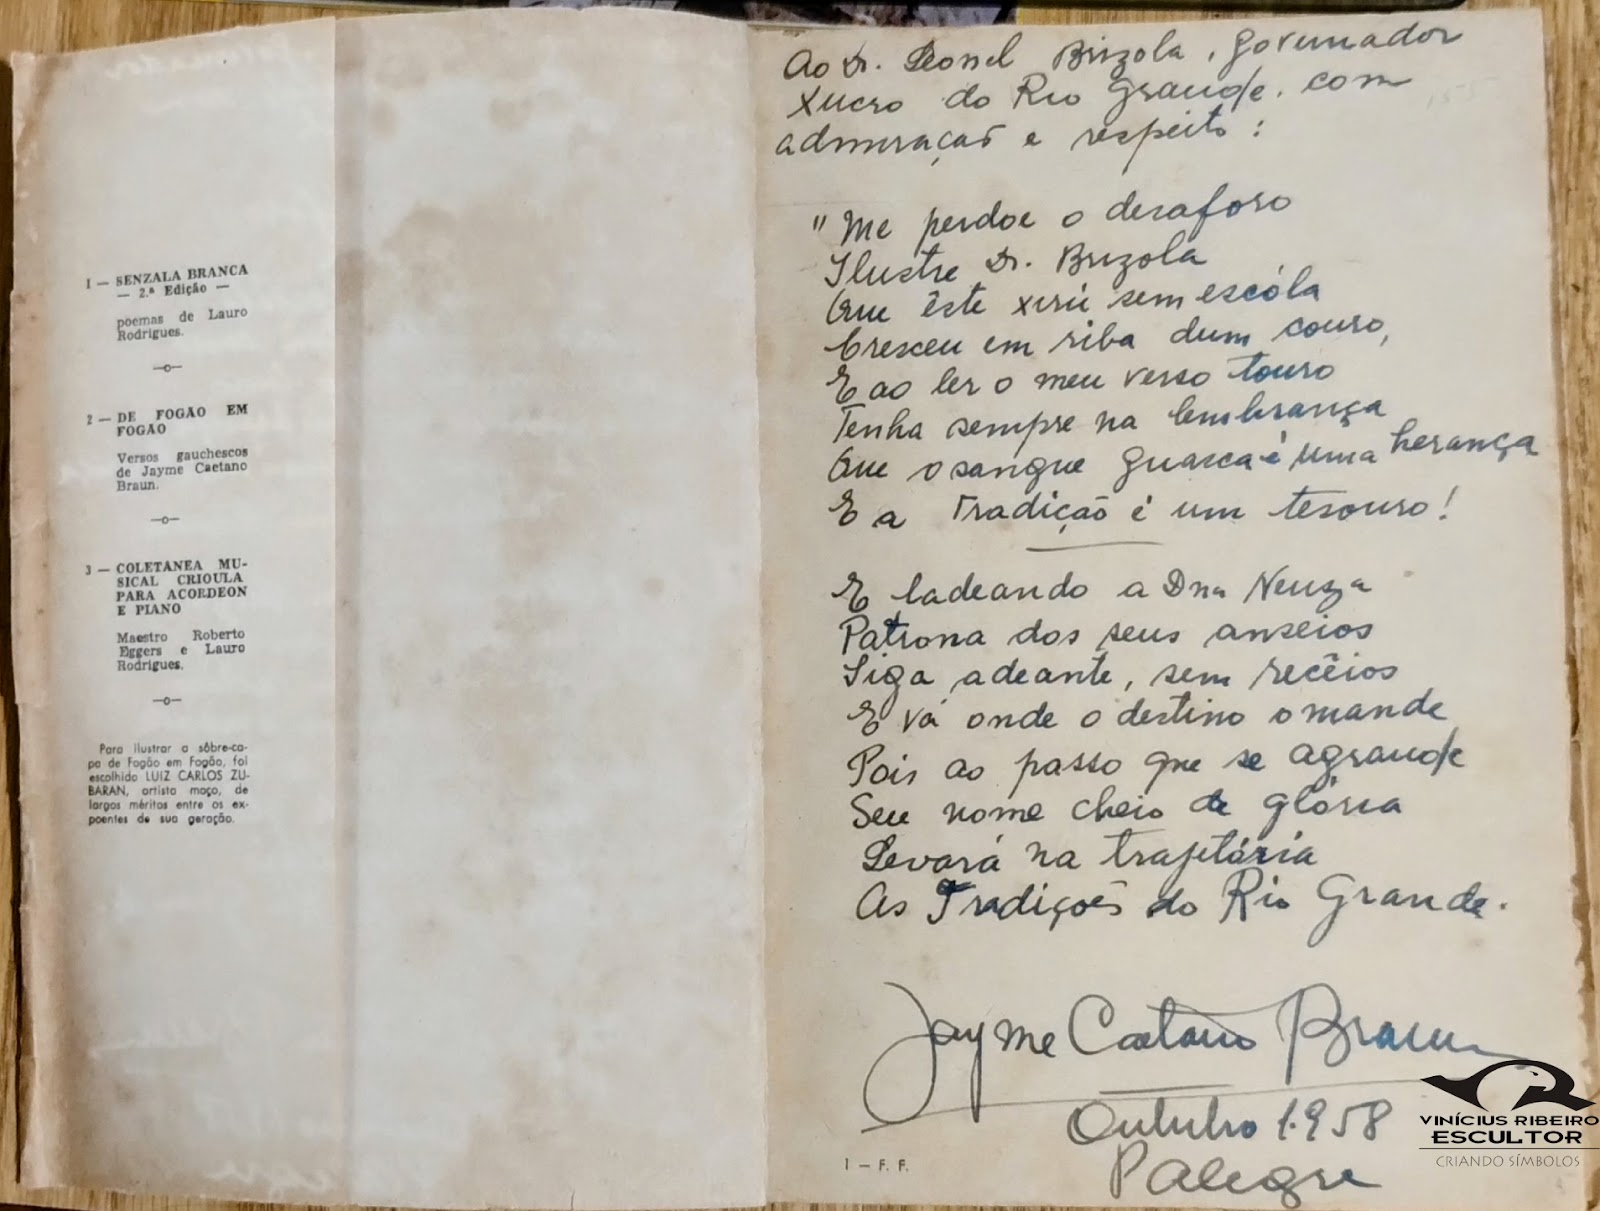 1 — SENZALA BRANCA
— 2.ª Edição —
poemas de Lauro
Rodrigues.
—o—
2 — DE FOGÃO EM
FOGÃO
Versos gauchescos
de Jayme Caetano
Braun.
—o—
3 — COLETANEA MU-
SICAL CRIOULA
PARA ACORDEON
E PIANO
Maestro Roberto
Eggers e Lauro
Rodrigues.
—o—
Para ilustrar a sôbre-ca-
pa de Fogão em Fogão, foi
escolhido LUIZ CARLOS ZU-
BARAN, artista moço, de
largos méritos entre os ex-
poentes de sua geração.
Ao Dr. Leonel Brizola, governador
xucro do Rio Grande, com
admiração e respeito:
"Me perdoe o desaforo
Ilustre Dr. Brizola
Que êste xirú sem escóla
Cresceu em riba dum couro,
E ao ler o meu verso touro
Tenha sempre na lembrança
Que o sangue guasca é uma herança
E a Tradição é um tesouro!
E ladeando a Dna Neuza
Patrona dos seus anseios
Siga adeante, sem recêios
E vá onde o destino o mande
Pois ao passo que se agrande
Seu nome cheio de glória
Levará na trajetória
As Tradições do Rio Grande.
Jayme Caetano Braun
Outubro 1.958
PAlegre
1 — F. F.
VINÍCIUS RIBEIRO
ESCULTOR
CRIANDO SÍMBOLOS